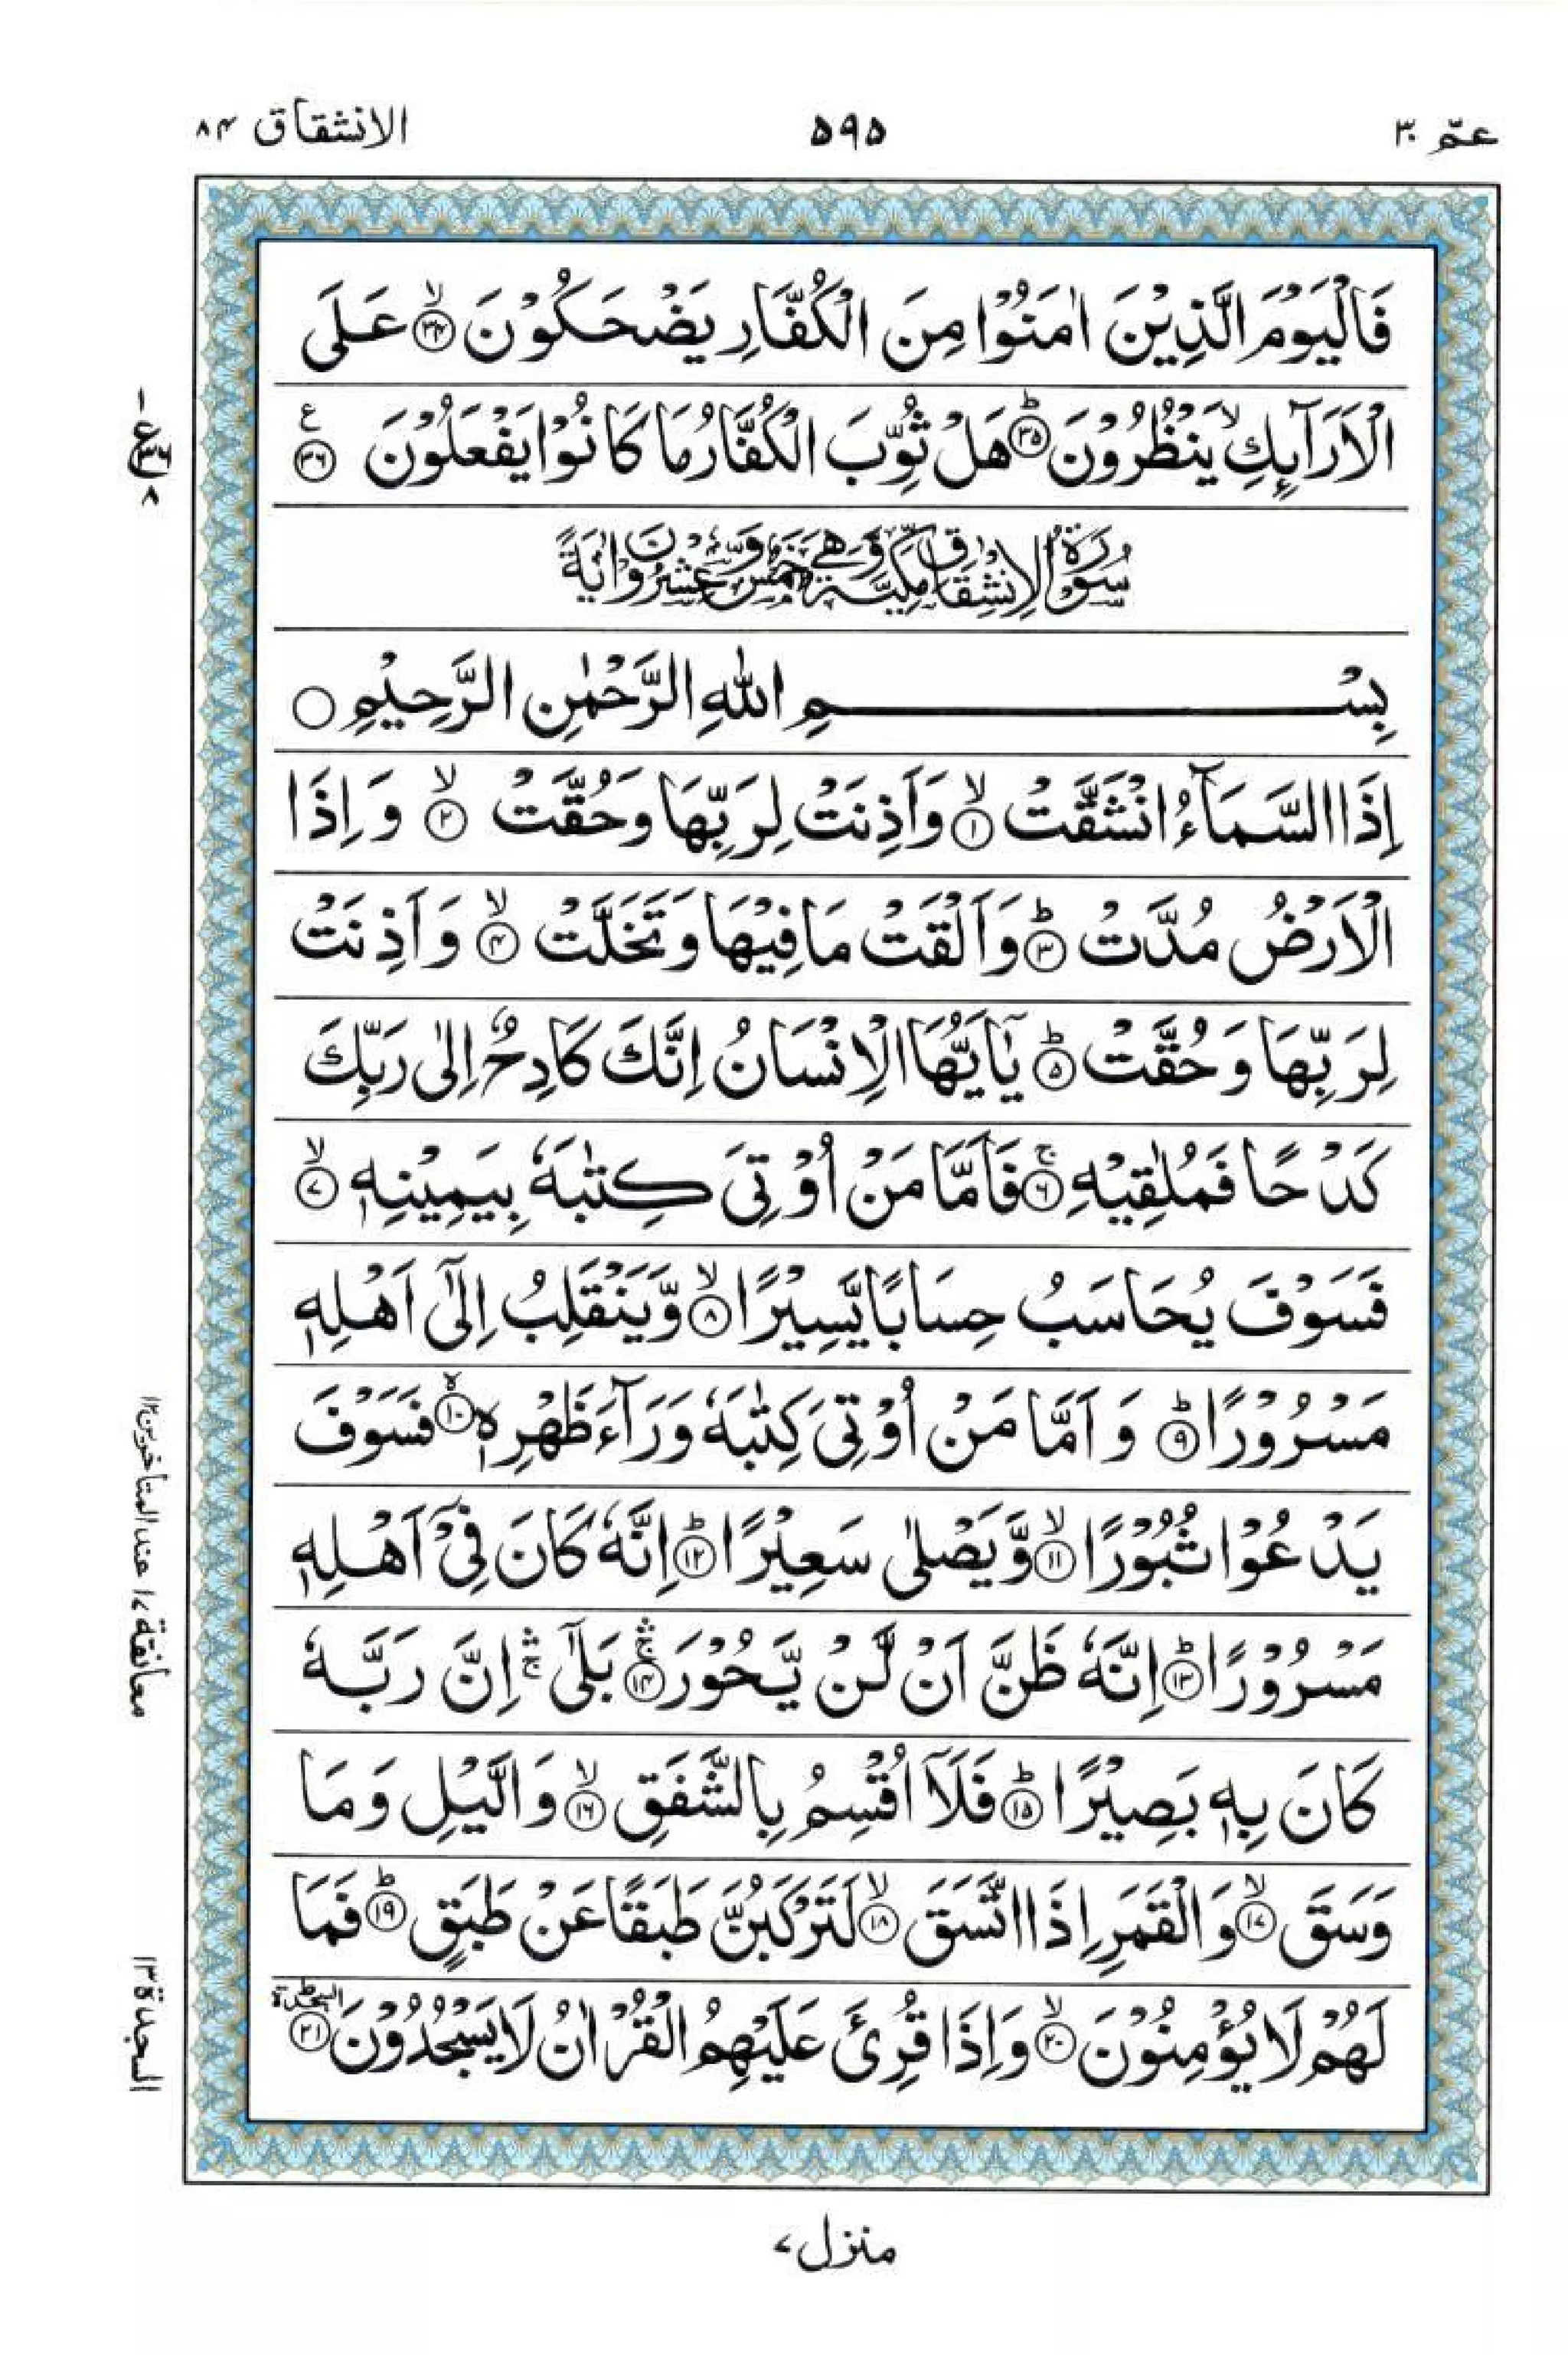 عمّ ۳۰
۵۹۵
الانشقاق ۸۴
فَالْيَوْمَ الَّذِيْنَ اٰمَنُوْا مِنَ الْكُفَّارِ يَضْحَكُوْنَ ۙ‏﴿۳۴﴾ عَلَى
الْاَرَآىِٕكِ ۙ يَنْظُرُوْنَ ؕ‏﴿۳۵﴾ هَلْ ثُوِّبَ الْكُفَّارُ مَا كَانُوْا يَفْعَلُوْنَ ‏﴿۳۶﴾ ع
سُوْرَةُ الْاِنْشِقَاقِ مَكِّيَّةٌ وَّهِيَ خَمْسٌ وَّعِشْرُوْنَ اٰيَةً
بِسْمِ اللّٰهِ الرَّحْمٰنِ الرَّحِيْمِ ○
اِذَا السَّمَآءُ انْشَقَّتْ ۙ‏﴿۱﴾ وَاَذِنَتْ لِرَبِّهَا وَحُقَّتْ ۙ‏﴿۲﴾ وَاِذَا
الْاَرْضُ مُدَّتْ ؕ‏﴿۳﴾ وَاَلْقَتْ مَا فِيْهَا وَتَخَلَّتْ ۙ‏﴿۴﴾ وَاَذِنَتْ
لِرَبِّهَا وَحُقَّتْ ؕ‏﴿۵﴾ يٰۤاَيُّهَا الْاِنْسَانُ اِنَّكَ كَادِحٌ اِلٰى رَبِّكَ
كَدْحًا فَمُلٰقِيْهِ ۚ‏﴿۶﴾ فَاَمَّا مَنْ اُوْتِىَ كِتٰبَهٗ بِيَمِيْنِهٖ ۙ‏﴿۷﴾
فَسَوْفَ يُحَاسَبُ حِسَابًا يَّسِيْرًا ۙ‏﴿۸﴾ وَّيَنْقَلِبُ اِلٰٓى اَهْلِهٖ
مَسْرُوْرًا ؕ‏﴿۹﴾ وَاَمَّا مَنْ اُوْتِىَ كِتٰبَهٗ وَرَآءَ ظَهْرِهٖ ۙ‏﴿۱۰﴾ فَسَوْفَ
يَدْعُوْا ثُبُوْرًا ۙ‏﴿۱۱﴾ وَّيَصْلٰى سَعِيْرًا ؕ‏﴿۱۲﴾ اِنَّهٗ كَانَ فِىْۤ اَهْلِهٖ
مَسْرُوْرًا ؕ‏﴿۱۳﴾ اِنَّهٗ ظَنَّ اَنْ لَّنْ يَّحُوْرَ ۛۚ‏﴿۱۴﴾ بَلٰٓى ۛۚ اِنَّ رَبَّهٗ
كَانَ بِهٖ بَصِيْرًا ؕ‏﴿۱۵﴾ فَلَاۤ اُقْسِمُ بِالشَّفَقِ ۙ‏﴿۱۶﴾ وَالَّيْلِ وَمَا
وَسَقَ ۙ‏﴿۱۷﴾ وَالْقَمَرِ اِذَا اتَّسَقَ ۙ‏﴿۱۸﴾ لَتَرْكَبُنَّ طَبَقًا عَنْ طَبَقٍ ؕ‏﴿۱۹﴾ فَمَا
لَهُمْ لَا يُؤْمِنُوْنَ ۙ‏﴿۲۰﴾ وَاِذَا قُرِئَ عَلَيْهِمُ الْقُرْاٰنُ لَا يَسْجُدُوْنَ ؕ‏﴿۲۱﴾ السجدة
معانقة ۱۷ عند المتأخرین ۱۲
السجدة ۱۳
منزل ۷